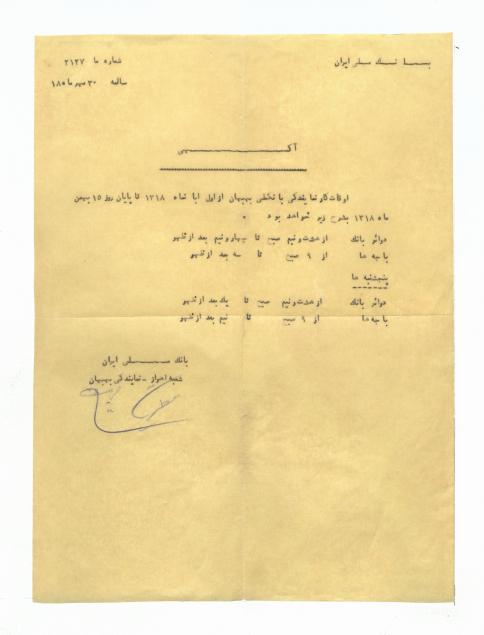 بانک ملی ایران
شماره ما ۲۱۲۷
۳۰ مهرماه
آگهی
اوقات کار نمایندگی بانک ملی بهبهان از اول آبان ماه ۱۳۱۸ تا پایان روز ۱۵ بهمن
ماه ۱۳۱۸ بشرح زیر خواهد بود .
دوائر بانک از هشت و نیم صبح تا چهار و نیم بعد از ظهر
باجه ها از ۹ صبح تا سه بعد از ظهر
پنجشنبه ها
دوائر بانک از هشت و نیم صبح تا یک بعد از ظهر
باجه ها از ۹ صبح تا نیم بعد از ظهر
بانک ملی ایران
شعبه اهواز - نمایندگی بهبهان